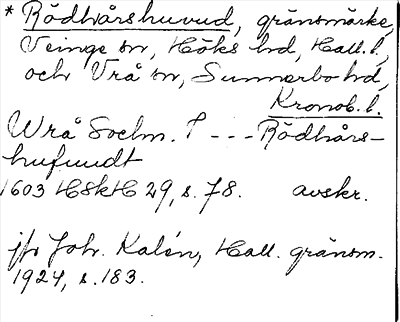 * Rödhårshuvud, gränsmärke,
Veinge sn, Höks hd, Hall. l.,
och Vrå sn, Sunnerbo hd,
Kronob. l.
Wrå Sochn. P --- Rödhårs-
hufuudt
1603 HSkH 29, s. 78. avskr.
jfr Joh. Kalén, Hall. gränsm.
1924, s. 183.